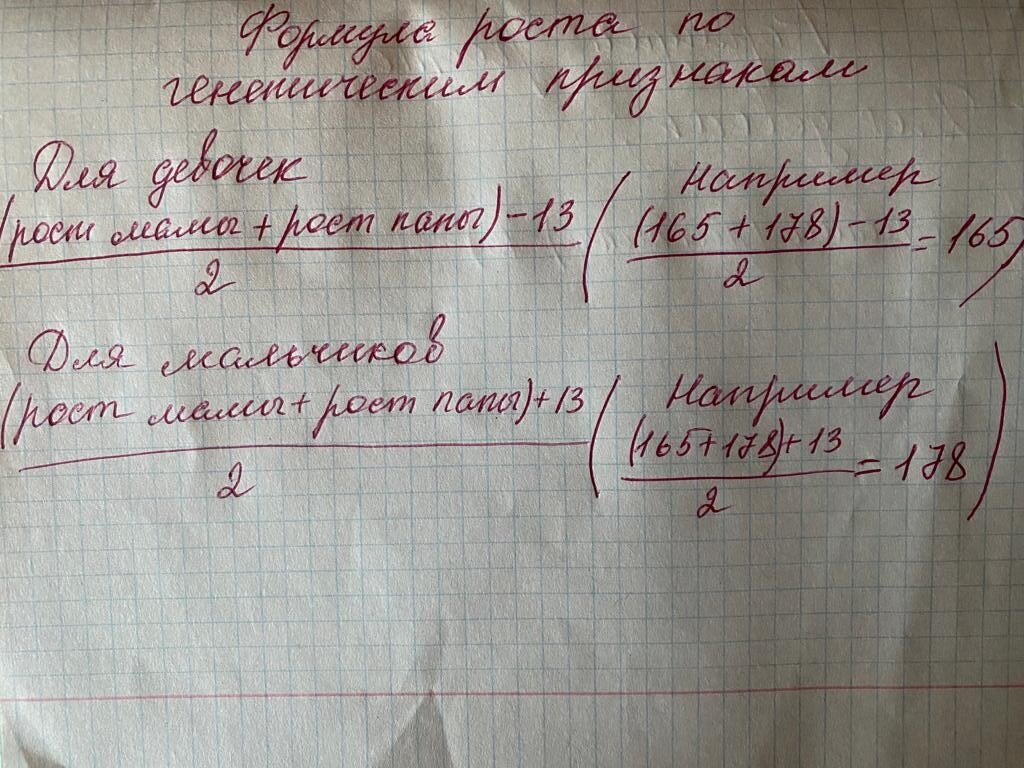 Формула роста по
генетическим признакам
Для девочек
(рост мамы + рост папы) - 13
2
(Например
(165 + 178) - 13
2
= 165)
Для мальчиков
(рост мамы + рост папы) + 13
2
(Например
(165 + 178) + 13
2
= 178)